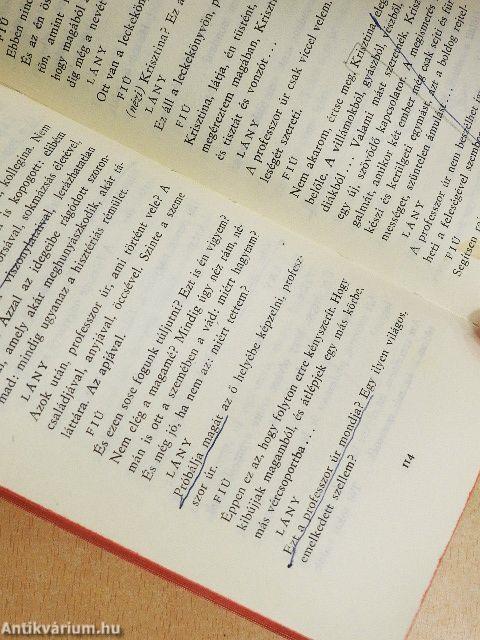 kollegina. Nem
is kopogott:
sokmázsás életével,
lerázhatatlan
Azzal az idegeibe rágódott szoron-
amely akár meghunyászkodik, akár tá-
mad: mindig ugyanaz a hisztériás rémület.
LÁNY
Azok után, professzor úr, ami történt vele? A
családjával, anyjával, öccsével. Szinte a szeme
láttára. Az apjával.
FIÚ
És ezen sose fogunk túljutni? Ezt is én vigyem?
Nem elég a magamé? Mindig úgy néz rám, né-
mán is ott a szemében a vád: miért hagytam?
És még jó, ha nem az: miért tettem?
LÁNY
Próbálja magát az ő helyébe képzelni, profesz-
szor úr.
FIÚ
Éppen ez az, hogy folyton erre kényszerít. Hogy
kibújjak magamból, és átlépjek egy más körbe,
más vércsoportba....
LÁNY
Ezt a professzor úr mondja? Egy ilyen világos,
emelkedett szellem?
114
FIÚ
Ebben
És az én
amint
hogy magából
dig még a nevét
LÁNY
Ott van a
FIÚ
(nézi) Krisztina? Ez
LÁNY
Ez áll a leckekönyvön,
FIÚ
Krisztina, látja, én füstént,
megéreztem magában, Krisztina
és tisztát és vonzót....
LÁNY
A professzor úr csak viccel velem.
lességét szereti.
FIÚ
Nem akarom, értse meg, Krisztina,
belőle. A villámokból, gyászból,
diákból... Valami mást szeretnék,
egy új, szövődő kapcsolatot. A megismerés
galmát, amikor két ember még csak sejti és für
készi és kerülgeti egymást, ezt a boldog rejtel-
mességet, szüntelen ámulást...
LÁNY
A professzor úr nem beszélhet
heti a feleségével
FIÚ
Segítsen
Antikvárium.hu